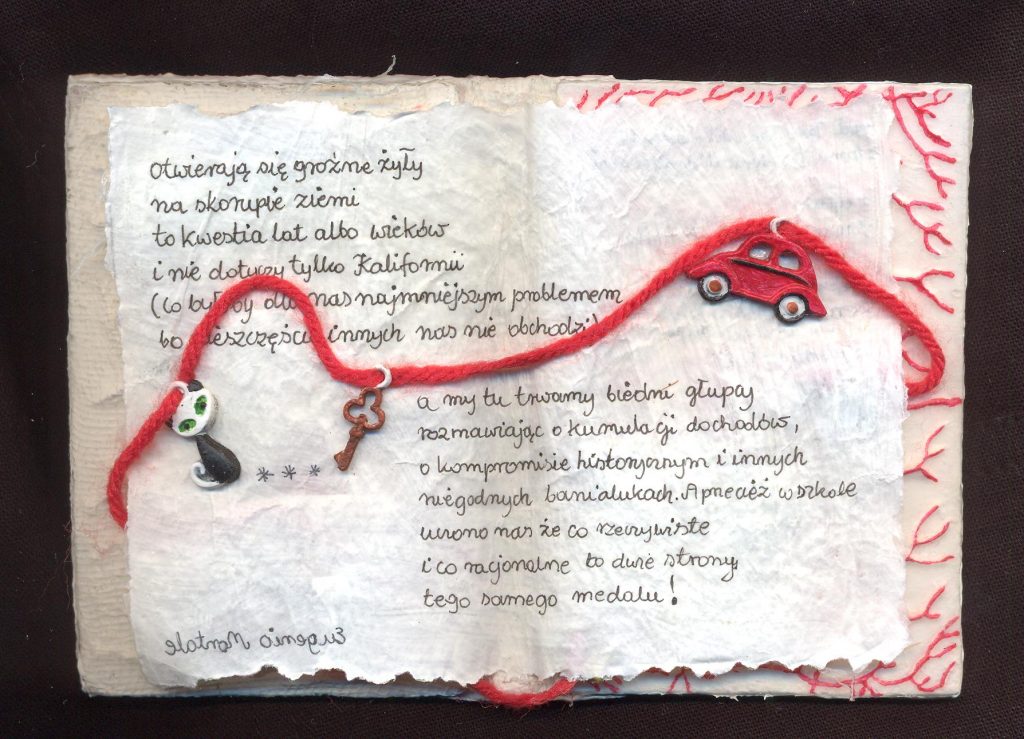 otwierają się groźne żyły
na skorupie ziemi
to kwestia lat albo wieków
i nie dotyczy tylko Kalifornii
(co byłoby dla nas najmniejszym problemem
bo nieszczęście innych nas nie obchodzi)
***
a my tu trwamy biedni głupcy
rozmawiając o kumulacji dochodów,
o kompromisie historycznym i innych
niegodnych banialukach. A przecież w szkole
uczono nas że co rzeczywiste
i co racjonalne to dwie strony
tego samego medalu!
Eugenio Montale